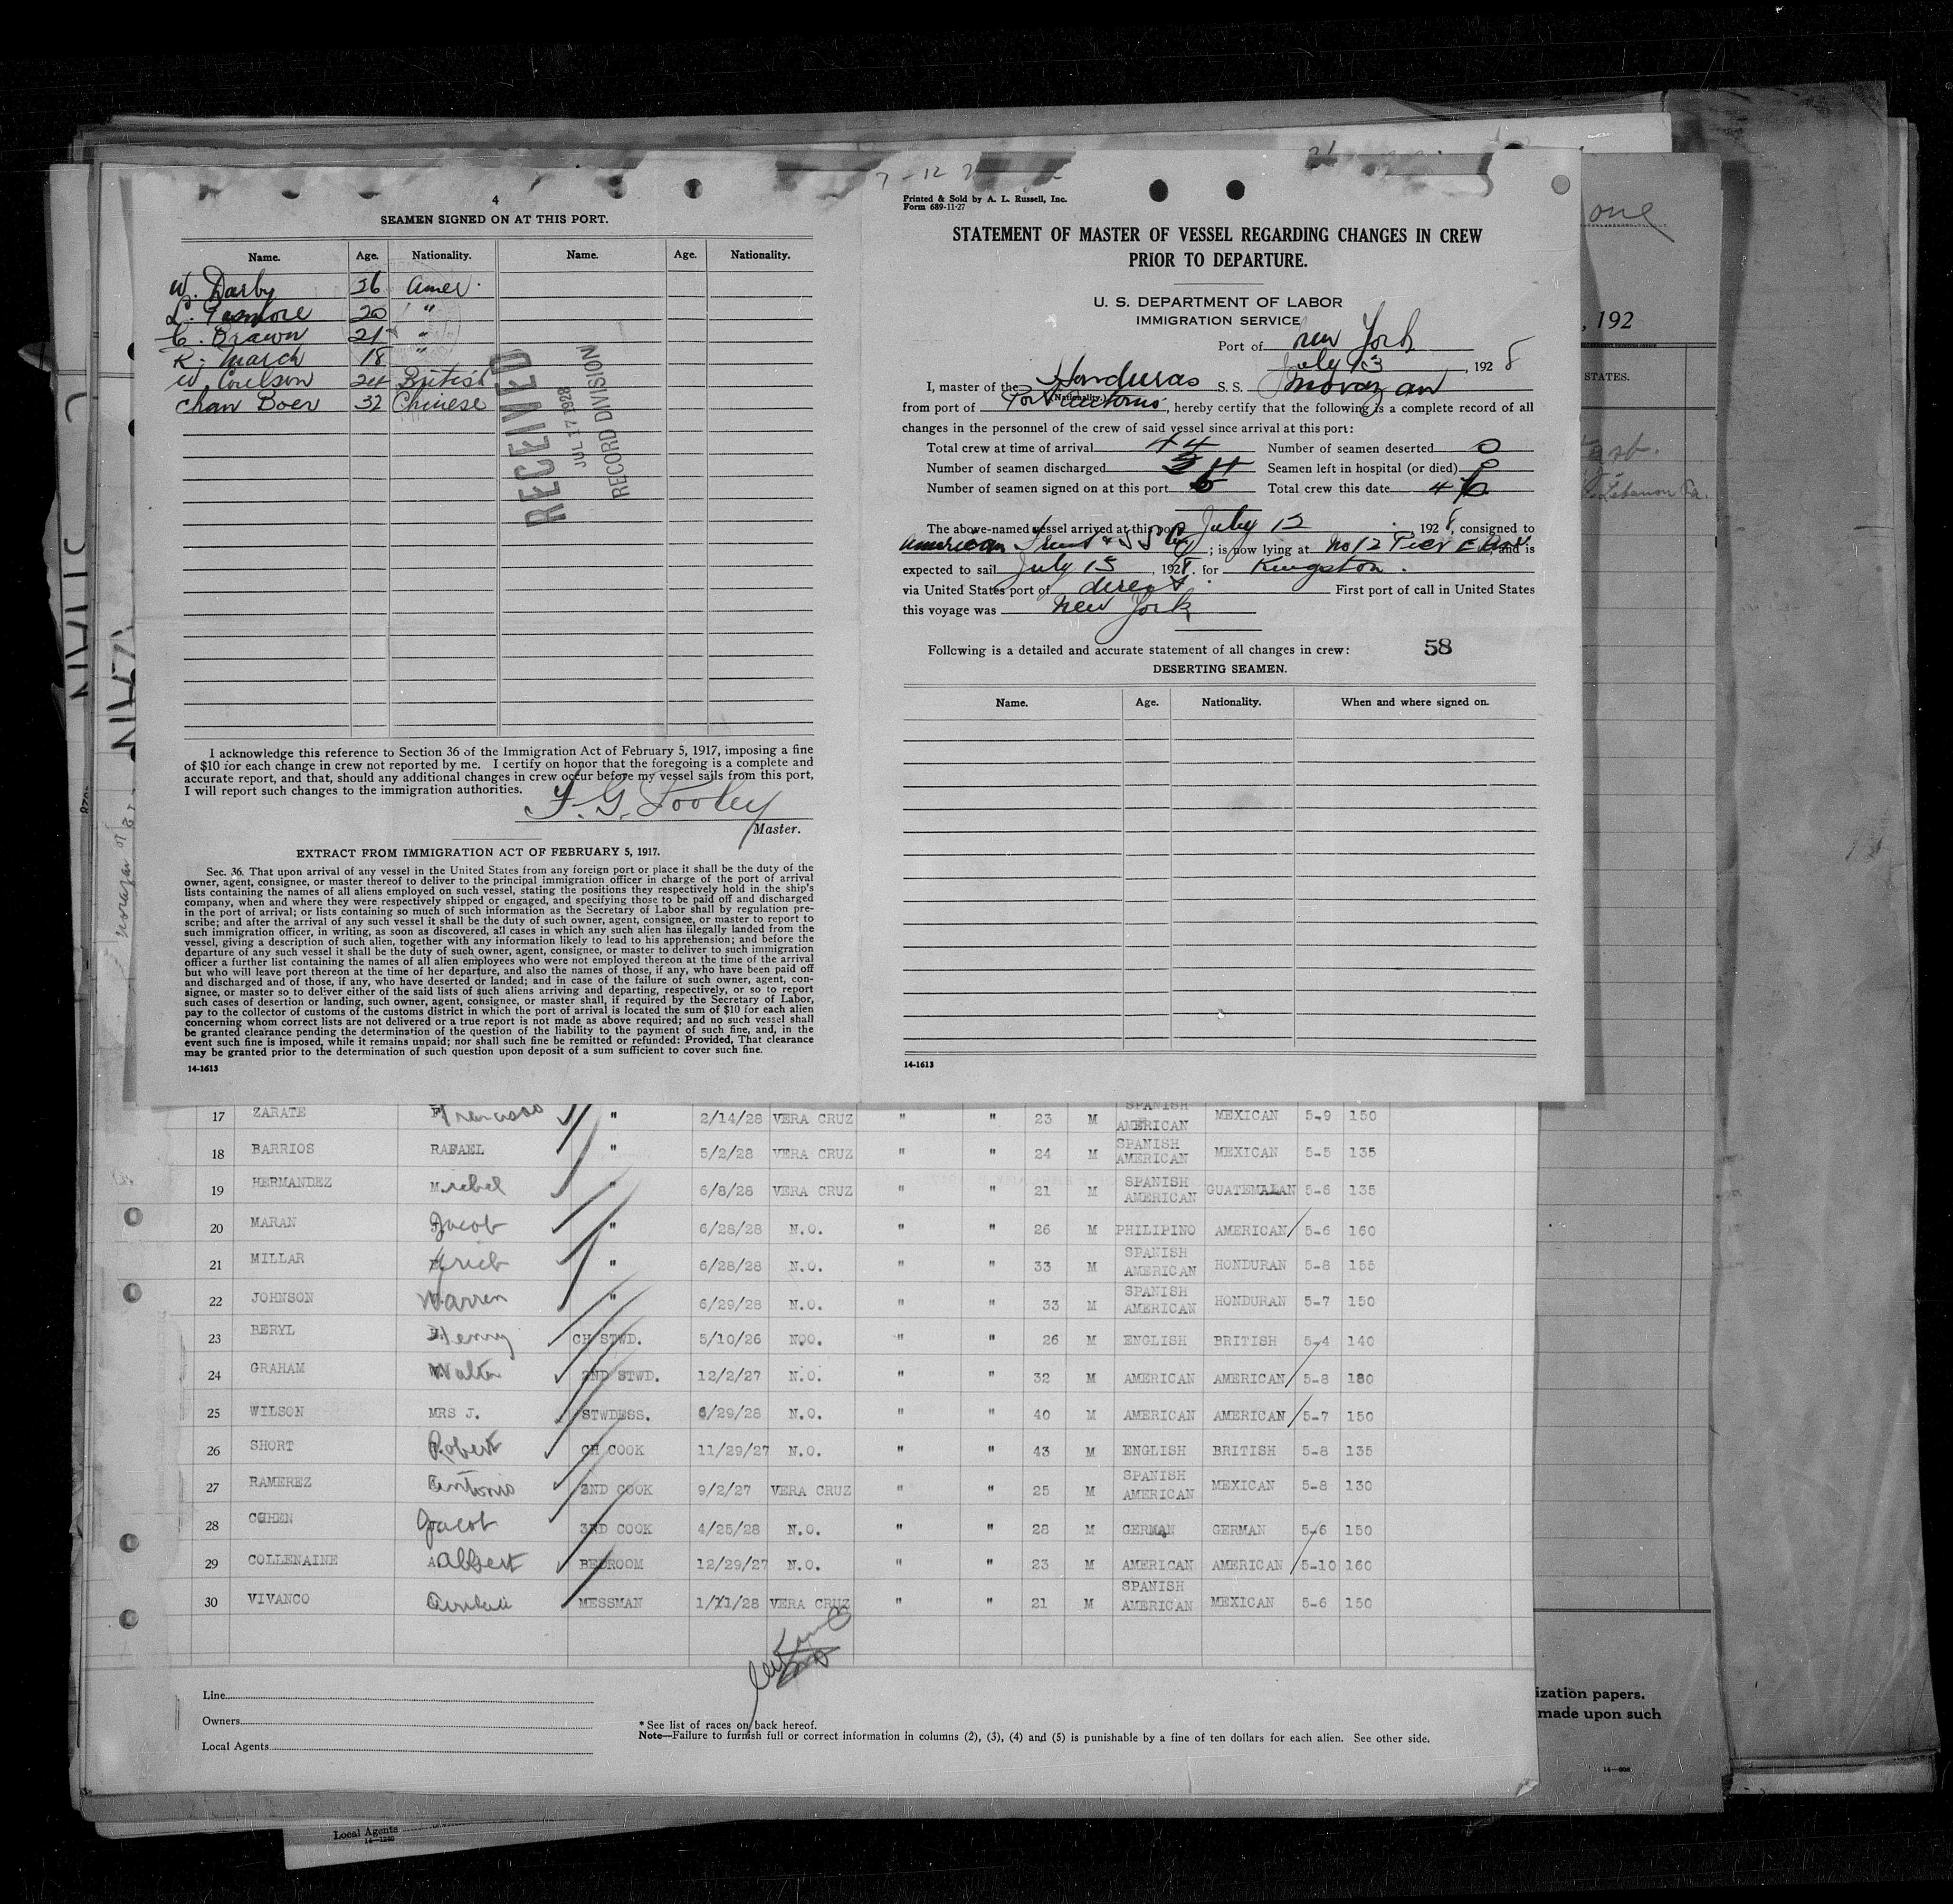 4
SEAMEN SIGNED ON AT THIS PORT.
Name. Age. Nationality. Name. Age. Nationality.
W. Darby 36 Amer.
L. 20 "
C. Brawn 21 "
R. March 18 "
W. Coulson 24 British
Chan Boer 32 Chinese
RECEIVED
JUL 17 1928
RECORD DIVISION
I acknowledge this reference to Section 36 of the Immigration Act of February 5, 1917, imposing a fine
of $10 for each change in crew not reported by me. I certify on honor that the foregoing is a complete and
accurate report, and that, should any additional changes in crew occur before my vessel sails from this port,
I will report such changes to the immigration authorities.
F. G. Tooley
Master.
EXTRACT FROM IMMIGRATION ACT OF FEBRUARY 5, 1917.
Sec. 36. That upon arrival of any vessel in the United States from any foreign port or place it shall be the duty of the
owner, agent, consignee, or master thereof to deliver to the principal immigration officer in charge of the port of arrival
lists containing the names of all aliens employed on such vessel, stating the positions they respectively hold in the ship's
company, when and where they were respectively shipped or engaged, and specifying those to be paid off and discharged
in the port of arrival; or lists containing so much of such information as the Secretary of Labor shall by regulation pre-
scribe; and after the arrival of any such vessel it shall be the duty of such owner, agent, consignee, or master to report to
such immigration officer, in writing, as soon as discovered, all cases in which any such alien has illegally landed from the
vessel, giving a description of such alien, together with any information likely to lead to his apprehension; and before the
departure of any such vessel it shall be the duty of such owner, agent, consignee, or master to deliver to such immigration
officer a further list containing the names of all alien employees who were not employed thereon at the time of the arrival
but who will leave port thereon at the time of her departure, and also the names of those, if any, who have been paid off
and discharged and of those, if any, who have deserted or landed; and in case of the failure of such owner, agent, con-
signee, or master so to deliver either of the said lists of such aliens arriving and departing, respectively, or so to report
such cases of desertion or landing, such owner, agent, consignee, or master shall, if required by the Secretary of Labor,
pay to the collector of customs of the customs district in which the port of arrival is located the sum of $10 for each alien
concerning whom correct lists are not delivered or a true report is not made as above required; and no such vessel shall
be granted clearance pending the determination of the question of the liability to the payment of such fine, and, in the
event such fine is imposed, while it remains unpaid; nor shall such fine be remitted or refunded: Provided, That clearance
may be granted prior to the determination of such question upon deposit of a sum sufficient to cover such fine.
14-1613
Printed & Sold by A. L. Russell, Inc.
Form 689-11-27
STATEMENT OF MASTER OF VESSEL REGARDING CHANGES IN CREW
PRIOR TO DEPARTURE.
U. S. DEPARTMENT OF LABOR
IMMIGRATION SERVICE
Port of New York
July 13, 1928
I, master of the Honduras S. S. Morazan
(Nationality.)
from port of, hereby certify that the following is a complete record of all
changes in the personnel of the crew of said vessel since arrival at this port:
Total crew at time of arrival 44 Number of seamen deserted 0
Number of seamen discharged 4 Seamen left in hospital (or died) 0
Number of seamen signed on at this port 6 Total crew this date 46
The above-named vessel arrived at this port July 12, 1928, consigned to
American Fruit & S S; is now lying at No 12 Pier E, and is
expected to sail July 15, 1928, for Kingston.
via United States port of direct. First port of call in United States
this voyage was New York
Following is a detailed and accurate statement of all changes in crew: 58
DESERTING SEAMEN.
Name. Age. Nationality. When and where signed on.
14-1613
17 ZARATE Francisco " 2/14/28 VERA CRUZ " " 23 M SPANISH AMERICAN MEXICAN 5-9 150
18 BARRIOS RAFAEL " 5/2/28 VERA CRUZ " " 24 M SPANISH AMERICAN MEXICAN 5-5 135
19 HERMANDEZ " 6/8/28 VERA CRUZ " " 21 M SPANISH AMERICAN GUATEMALAN 5-6 135
20 MARAN Jacob " 6/28/28 N.O. " " 26 M PHILIPINO AMERICAN 5-6 160
21 MILLAR " 6/28/28 N.O. " " 33 M SPANISH AMERICAN HONDURAN 5-8 155
22 JOHNSON Warren " 6/29/28 N.O. " " 33 M SPANISH AMERICAN HONDURAN 5-7 150
23 BERYL Henry CH STWD. 5/10/26 NOO. " " 26 M ENGLISH BRITISH 5-4 140
24 GRAHAM Walter 2ND STWD. 12/2/27 N.O. " " 32 M AMERICAN AMERICAN 5-8 180
25 WILSON MRS J. STWDESS. 6/29/28 N.O. " " 40 M AMERICAN AMERICAN 5-7 150
26 SHORT Robert CH COOK 11/29/27 N.O. " " 43 M ENGLISH BRITISH 5-8 135
27 RAMEREZ Antonio 2ND COOK 9/2/27 VERA CRUZ " " 25 M SPANISH AMERICAN MEXICAN 5-8 130
28 COHEN Jacob 3RD COOK 4/25/28 N.O. " " 28 M GERMAN GERMAN 5-6 150
29 COLLENAINE Albert BEDROOM 12/29/27 N.O. " " 23 M AMERICAN AMERICAN 5-10 160
30 VIVANCO MESSMAN 1/11/28 VERA CRUZ " " 21 M SPANISH AMERICAN MEXICAN 5-6 150
Line
Owners
Local Agents
* See list of races on back hereof.
Note—Failure to furnish full or correct information in columns (2), (3), (4) and (5) is punishable by a fine of ten dollars for each alien. See other side.
one
, 192
STATES.
Lebanon Pa.
ization papers.
made upon such
Local Agents